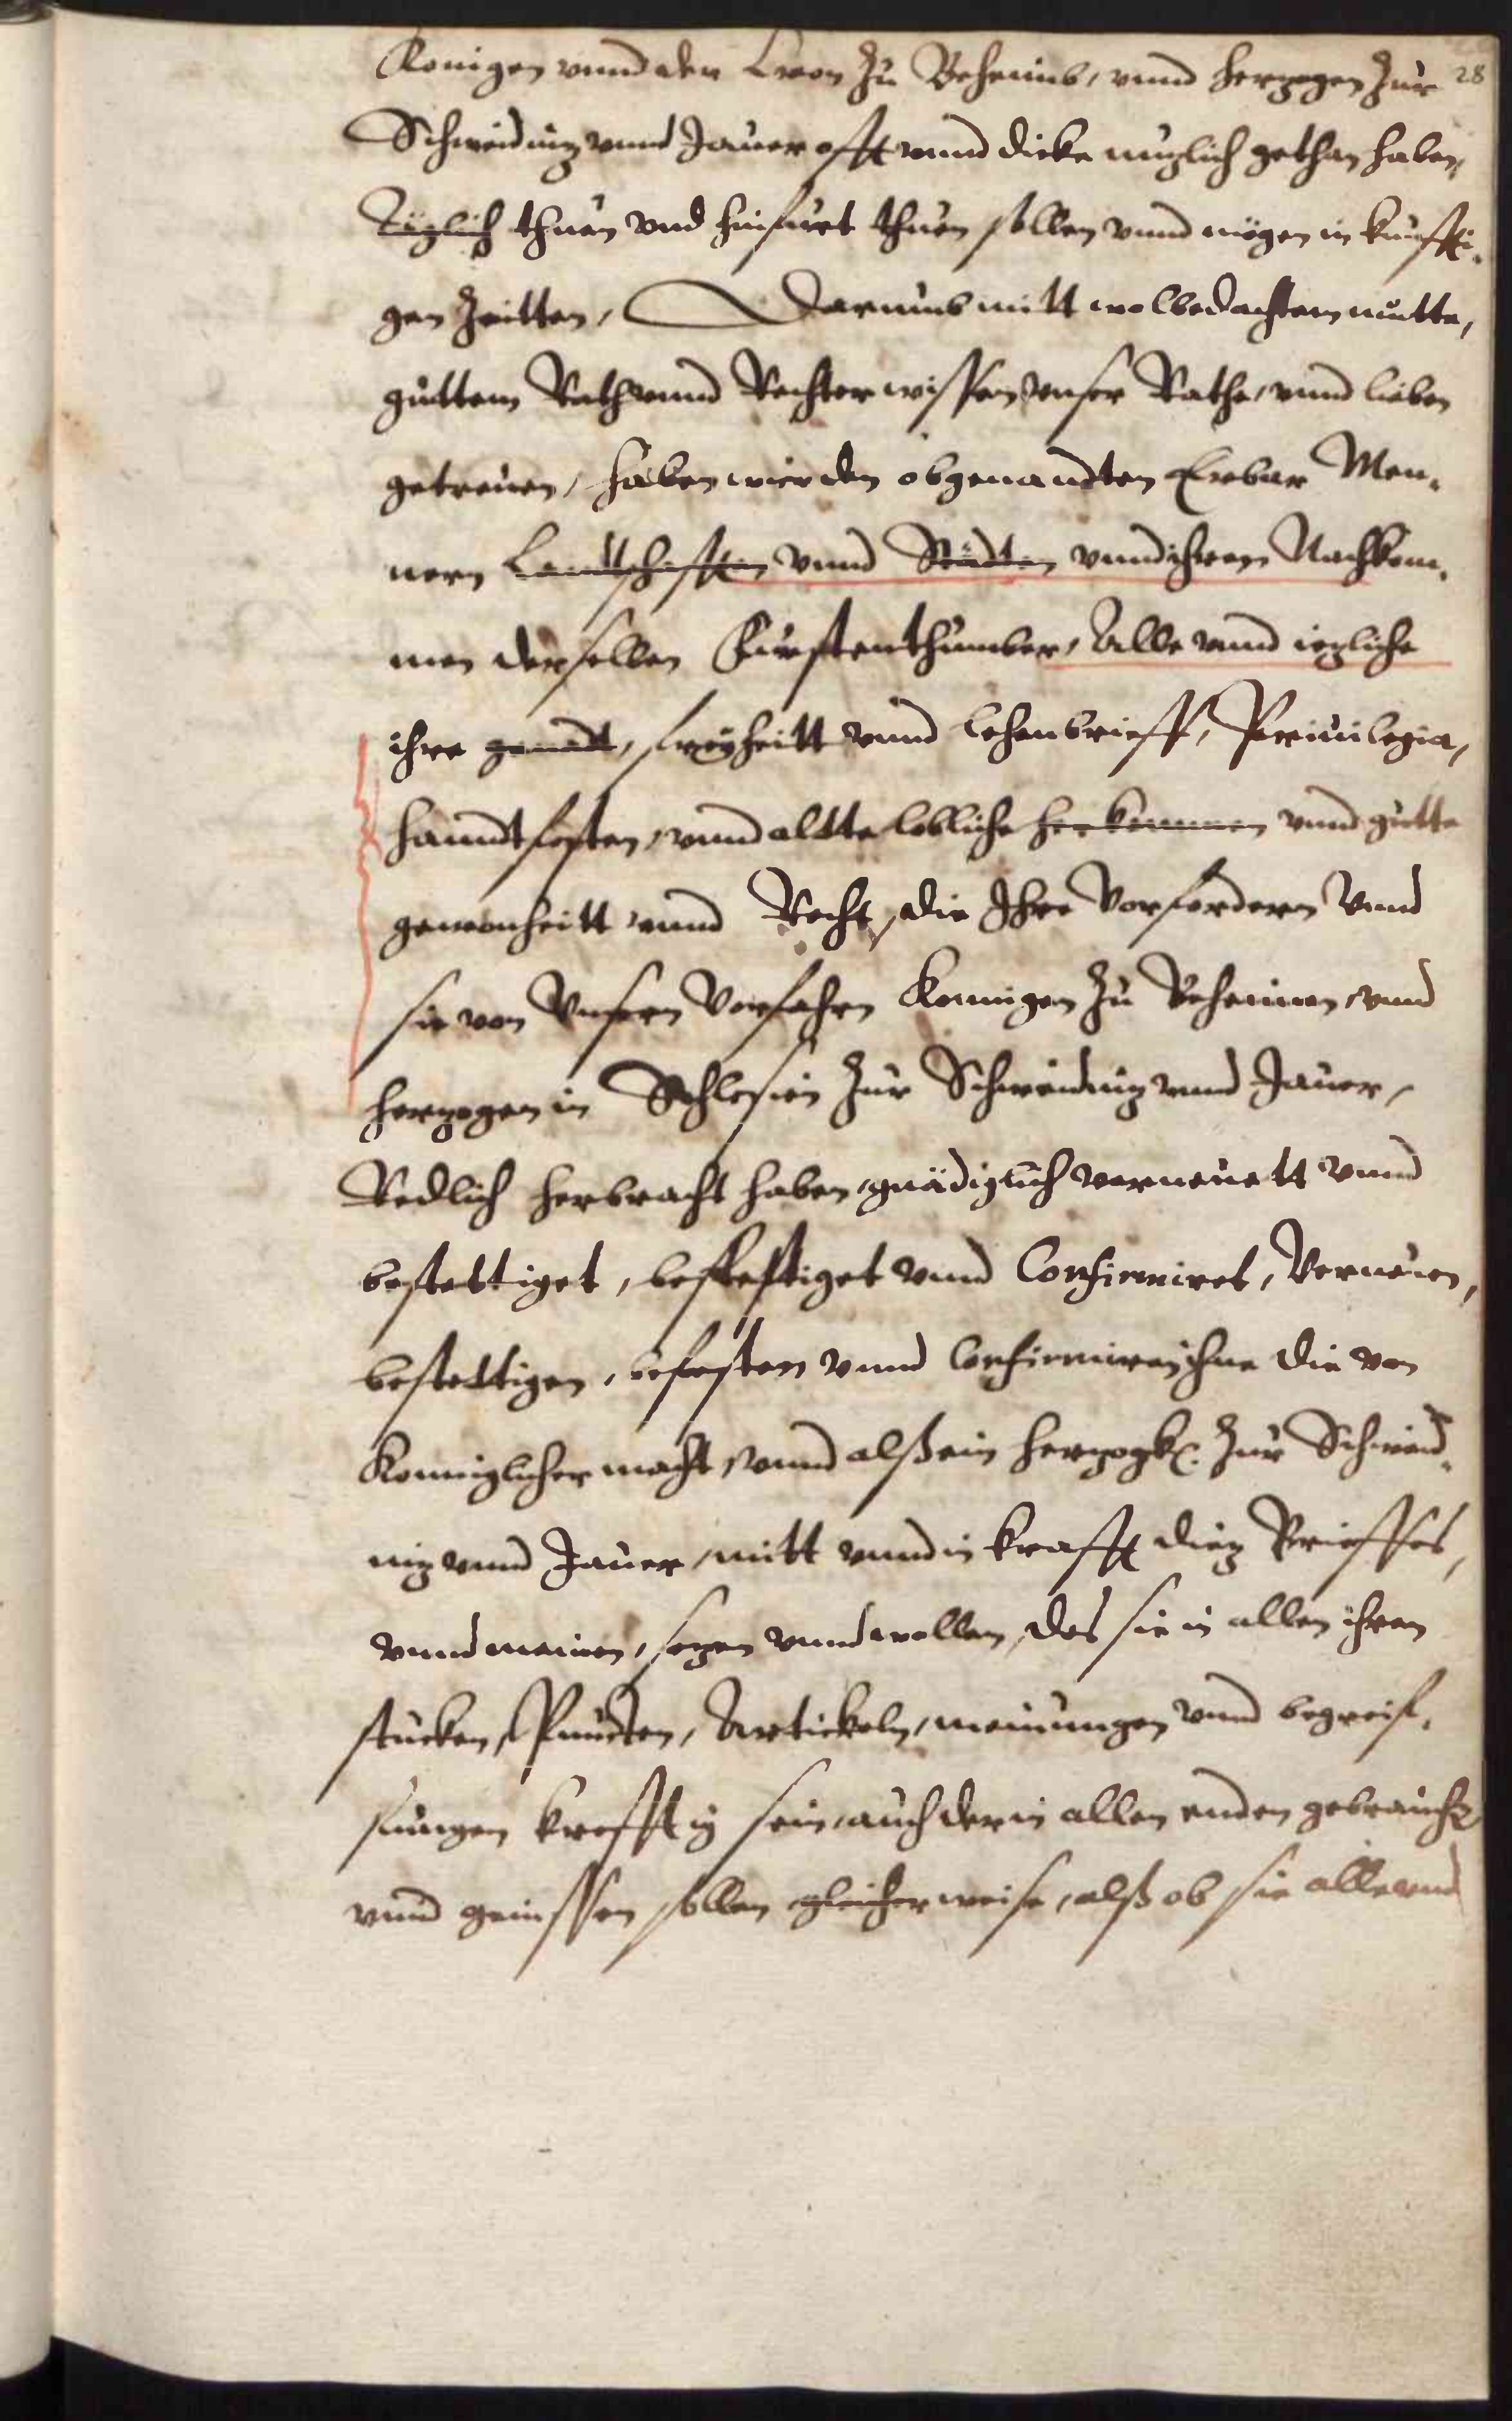 Konigen vnnd der Cron zu Beheimb, vnnd herzogen zur 28
Schweidnitz vnnd Jauer offt vnnd dicke nuzlich gethan haben,
Täglich thuen vnd hinfurt thuen sollen vnnd mögen in kunffti-
gen Zeitten, Darumb mitt wolbedachtem mutte,
guttem Rath vnnd Rechter wissen vnser Räthe, vnnd lieben
getreuen, haben wier den obgenandten Erbar Men-
nern Landtschafften vnnd Städten vnnd ihren Nachkom-
men derselben Fürstenthumber, Alle vnnd iegliche
ihre genadt, freyheitt vnnd lehenbrieff, Priuilegia,
handtfesten, vnnd altte lobliche herkommen vnnd gutte
gewonheitt vnnd Recht, die Ihre Vorfordern Vnnd
sie von Vnsern Vorfahrn Konnigen zu Beheimen, vnnd
herzogen in Schlesien zur Schweidnitz vnnd Jauer,
Redlich herbracht haben, gnädiglich verneuett vnnd
bestettiget, beffestiget vnnd Confirmiret, Verneuen,
bestettigen, befesten vnnd Confirmiren ihne die von
Konniglicher macht, vnnd alß ein herzogk. zur Schweid-
nitz vnnd Jauer, mitt vnnd in krafft dietz Brieffes,
vnnd meinen, setzen vnnd wollen, das sie in allen ihren
stucken, Puncten, Artickeln, meinungen vnnd begreif-
fungen krefftig sein, auch der in allen enden gebrauchen
vnnd genissen sollen gleicher weise, alß ob sie alle vnd